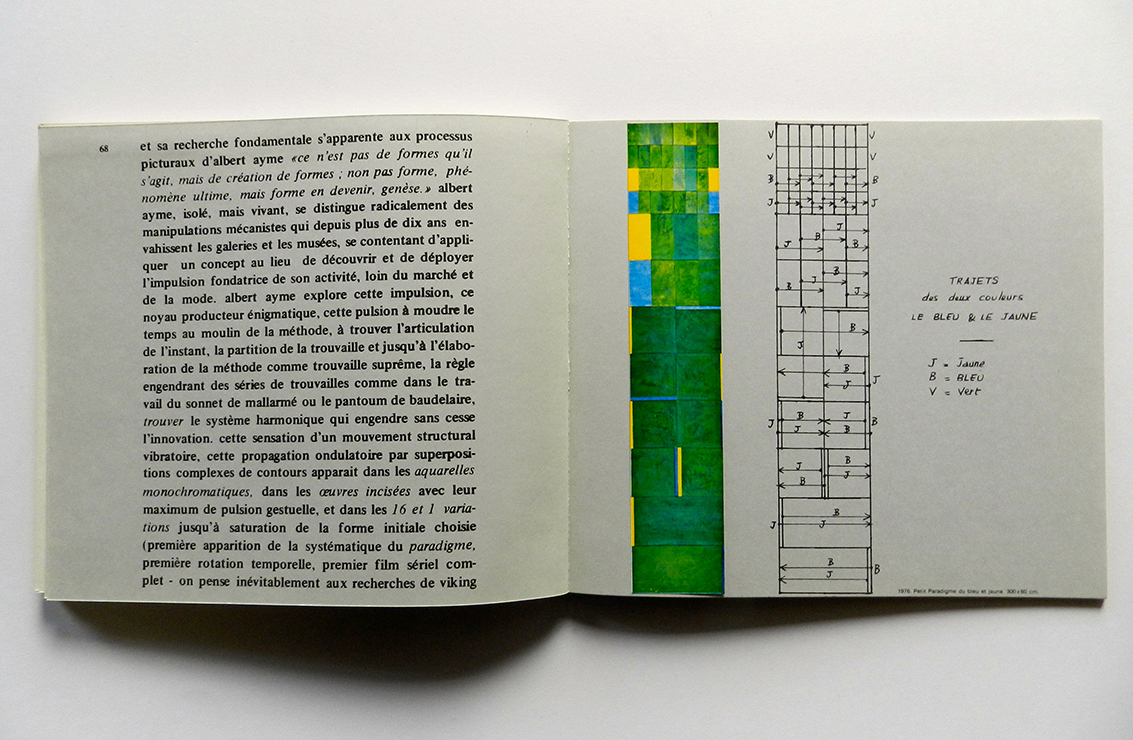 68
et sa recherche fondamentale s'apparente aux processus
picturaux d'albert ayme «ce n'est pas de formes qu'il
s'agit, mais de création de formes ; non pas forme, phé-
nomène ultime, mais forme en devenir, genèse.» albert
ayme, isolé, mais vivant, se distingue radicalement des
manipulations mécanistes qui depuis plus de dix ans en-
vahissent les galeries et les musées, se contentant d'appli-
quer un concept au lieu de découvrir et de déployer
l'impulsion fondatrice de son activité, loin du marché et
de la mode. albert ayme explore cette impulsion, ce
noyau producteur énigmatique, cette pulsion à moudre le
temps au moulin de la méthode, à trouver l'articulation
de l'instant, la partition de la trouvaille et jusqu'à l'élabo-
ration de la méthode comme trouvaille suprême, la règle
engendrant des séries de trouvailles comme dans le tra-
vail du sonnet de mallarmé ou le pantoum de baudelaire,
trouver le système harmonique qui engendre sans cesse
l'innovation. cette sensation d'un mouvement structural
vibratoire, cette propagation ondulatoire par superposi-
tions complexes de contours apparait dans les aquarelles
monochromatiques, dans les œuvres incisées avec leur
maximum de pulsion gestuelle, et dans les 16 et 1 varia-
tions jusqu'à saturation de la forme initiale choisie
(première apparition de la systématique du paradigme,
première rotation temporelle, premier film sériel com-
plet - on pense inévitablement aux recherches de viking
V V
V V
B B
J J
J
B
J B
B
J
B J
B
J
B
J J
B J
J B J B
J B
B J
B
J J
B
J B
TRAJETS
des deux couleurs
LE BLEU & LE JAUNE
J = Jaune
B = BLEU
V = Vert
1976. Petit Paradigme du bleu et jaune 300 x 60 cm.